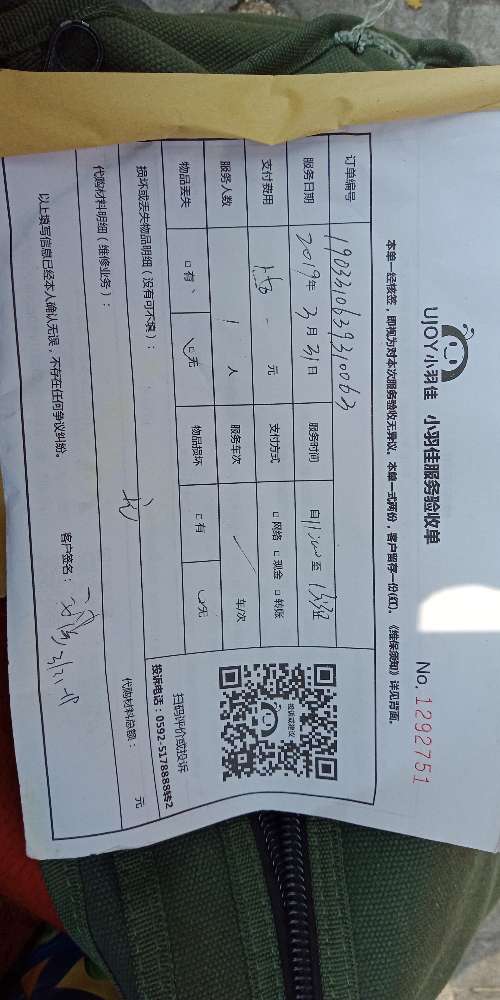 UJOY小羽佳 小羽佳服务验收单
No. 1292751
本单一经核签，即视为对本次服务验收无异议。本单一式两份，客户留存一份(红)。《维保须知》详见背面。
订单编号 1903310639310063
服务日期 2019年 3月 31日 服务时间 自 至
支付费用 元 支付方式 □网络 □现金 □转账
服务人数 1 人 服务车次 / 车/次
物品丢失 □有 □无 物品损坏 □有 □无
损坏或丢失物品明细（没有可不填）： 无
代购材料明细（维修业务）：
代购材料总额： 元
以上填写信息已经本人确认无误，不存在任何争议纠纷。 客户签名：
投诉或建议
扫码评价或投诉
投诉电话：0592-5178888转2